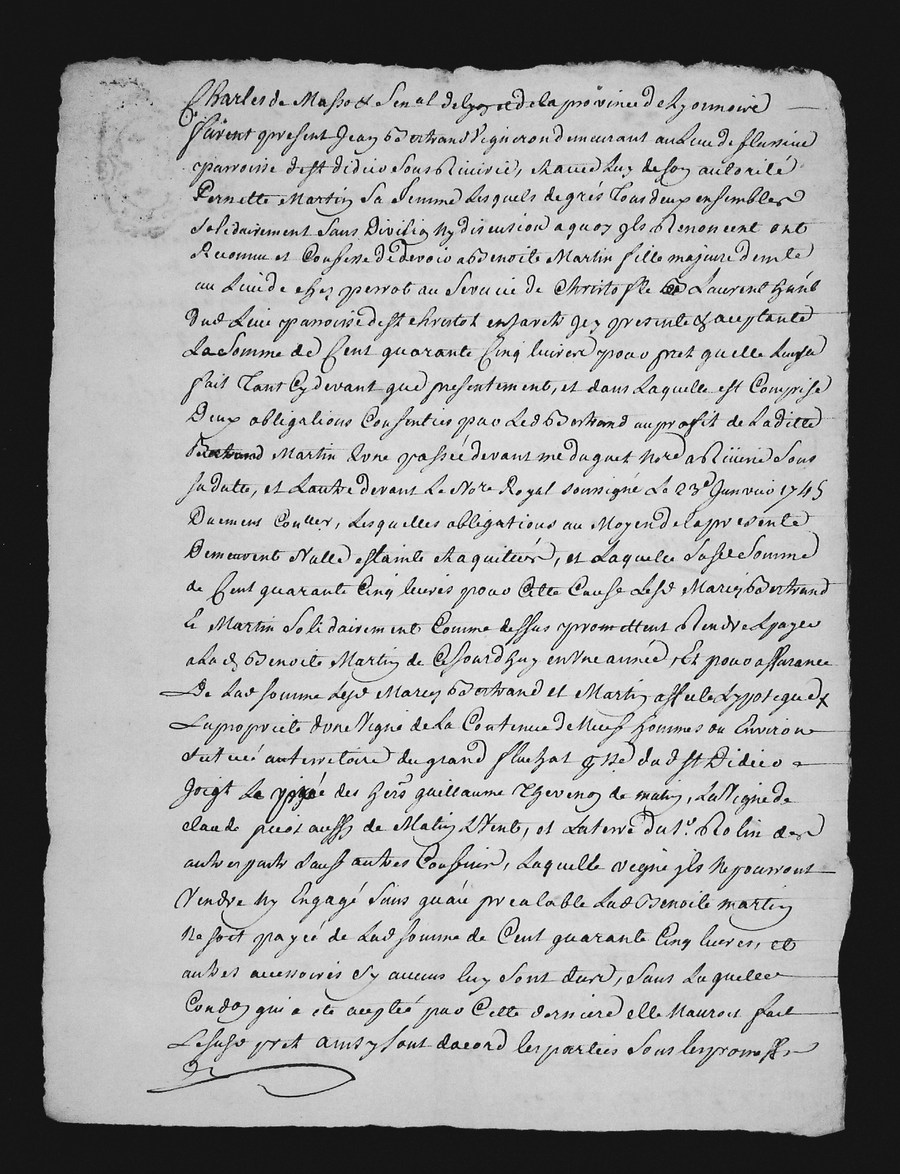 Charles de Masso & Senal de lyon et de la province de Lyonnoire
furent present Jean Bertrand Vigneron demeurant au Lieu de flurieue
parroisse de st didier Sous Riverie, et avec luy de son autorité
Pernette Martin Sa femme Lesquels de grés Tous deux ensembles
Solidairement Sans Division Ny discution a quoy jls Renoncent ont
Reconnu et Confessé de devoir a Benoite Martin fille majeure demte
au Lieu de chez perrot au Service de Christofle Laurent
dud Lieu parroisse de st christot en Jarets jcy presente & aceptante
La Somme de Cent quarante Cinq livres pour pret quelle Leur a
fait Tant Cy devant que presentement, et dans Laquelle est Comprise
Deux obligations Consenties par Led Bertrand au profit de Laditte
Bertrand Martin Lune passée devant me duguet Nore a Riverie Sous
sa datte, et Lautre devant Le Nore Royal soussigné Le 23e Janvier 1745
Duement Conller, Lesquelles obligations au Moyen de la presente
Demeurent Nulle estainte et aquittées, et Laquelle Susde Somme
de Cent quarante Cinq livres pour Cette Cause Lesd Mariez Bertrand
Et Martin Solidairement Comme dessus promettent Rendre & payer
a Lad Benoite Martin de Cejourdhuy en Une année, Et pour assurance
De Lad somme Lesd Mariez Bertrand et Martin
La propriété dune Vigne de La Contenue de Neuf hommes ou Environ
Scitueé au terretoire du grand fluchat psse dud st Didier
Joigt Le des hers guillaume Thevenon de matin, La Vigne de
claude piot aussy de Matin & Vent, et La terre du sr Rolin des
autres parts Sauf autres Confins, Laquelle vigne jls Ne pourront
Vendre Ny Engagé Sans quau prealable Lad Benoite martin
Ne soit payeé de Lad somme de Cent quarante Cinq livres, et
autres accessoires Sy aucuns luy Sont dus, Sans Laquelle
Condon qui a été aceptée par Cette derniere elle Nauroit fait
Le susd pret ainsy Sont dacord les parties Sous les promesses